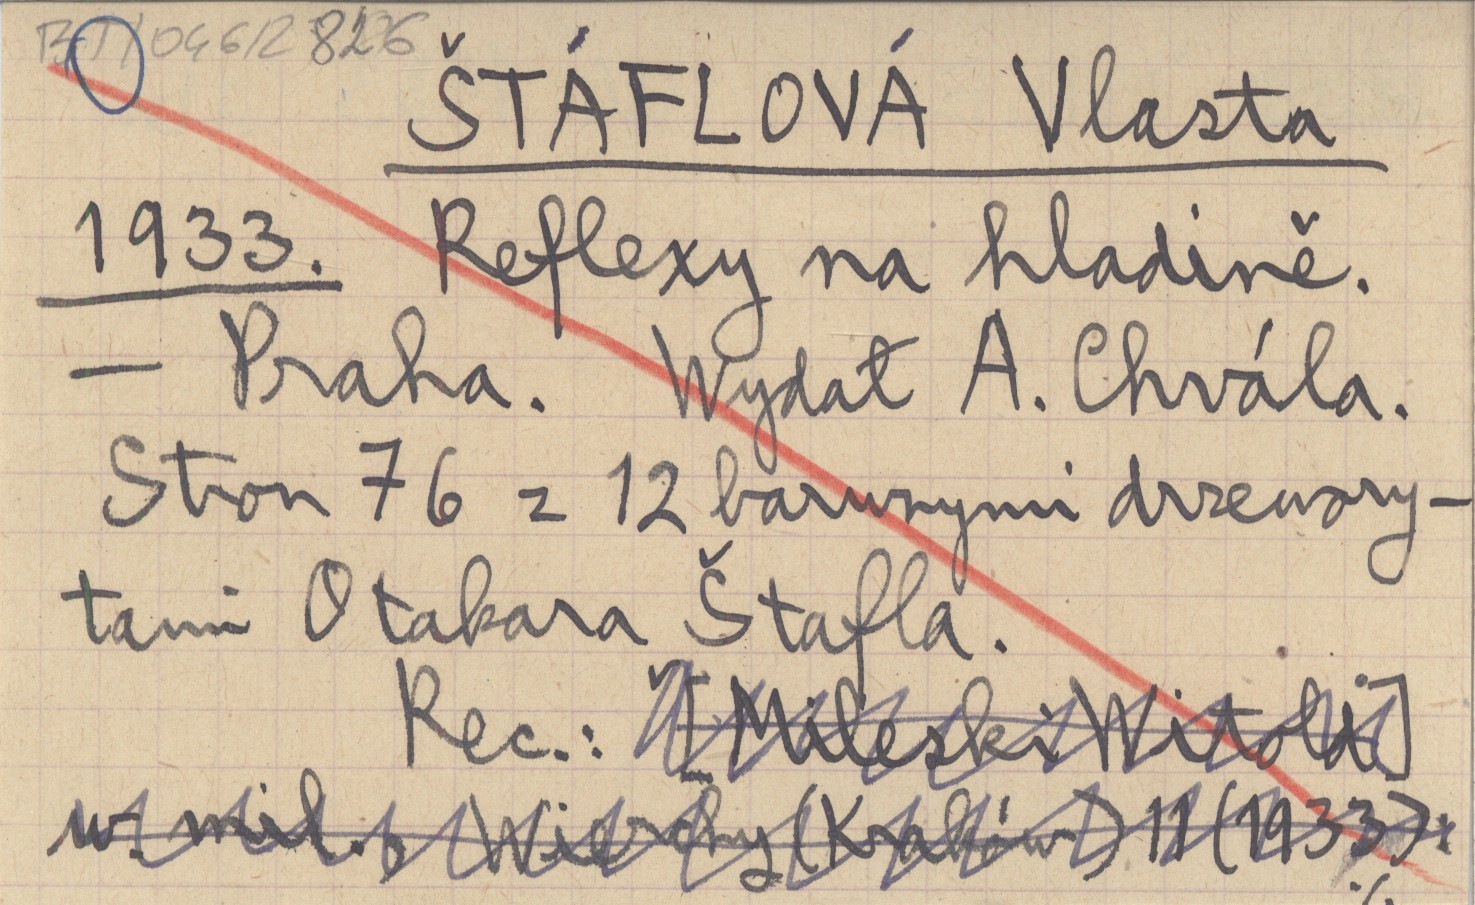 ŠTÁFLOVÁ Vlasta
1933. Reflexy na hladině.
— Praha. Wydał A. Chvála.
Stron 76 z 12 barwnymi drzewory-
tami Otakara Štafla.
Rec.: [Mileski Witold]
w. mil., Wierchy (Kraków) 11 (1933):
·/.